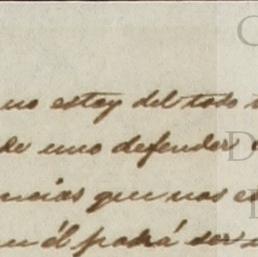 no estoy del todo
de uno defender
ncias que nos es
él podrá ser